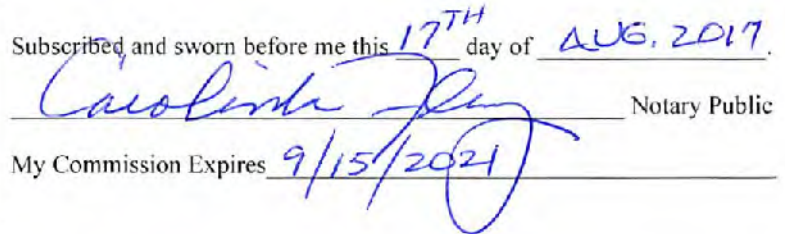 Subscribed and sworn before me this 17TH day of AUG. 2017.
Notary Public
My Commission Expires 9/15/2021